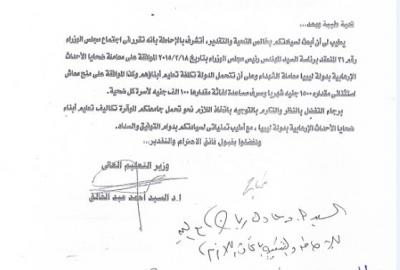 تحية طيبة وبعد...
يطيب لى أن أبعث لسيادتكم بخالص التحية والتقدير، أتشرف بالإحاطة بأنه تقرر فى اجتماع مجلس الوزراء
رقم ٣١ المنعقد برئاسة السيد المهندس رئيس مجلس الوزراء بتاريخ ٢٠١٥/٢/١٨ الموافقة على معاملة ضحايا الأحداث
الإرهابية بدولة ليبيا معاملة الشهداء وعلى أن تتحمل الدولة تكلفة تعليم أبنائهم وكذا الموافقة على منح معاش
استثنائى مقداره ١٥٠٠ جنيه شهريا وصرف مساعدة اغاثة مقدارها ١٠٠ الف جنيه لأسرة كل ضحية.
برجاء التفضل بالنظر والتكرم بالتوجيه باتخاذ اللازم نحو تحمل جامعتكم الموقرة تكاليف تعليم أبناء
ضحايا الأحداث الإرهابية بدولة ليبيا، مع أطيب تمنياتى لسيادتكم بدوام التوفيق والسداد.
وتفضلوا بقبول فائق الاحترام والتقدير...
وزير التعليم العالى
أ.د السيد أحمد عبد الخالق